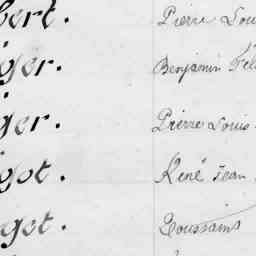 bert. Pierre Lou
ger. Benjamin Fél
ger. Pierre Louis
got. René Jean
get. Toussaint